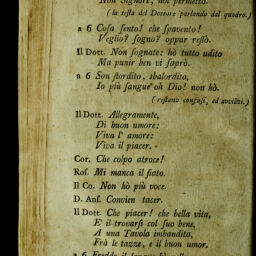 Non Signore, non permetto.
( la testa del Dottore parlando dal quadro. )
a 6 Cosa sento! che spavento!
Veglio? sogno? oppur restò.
Il Dott. Non sognate: hò tutto udito
Ma punir ben vi saprò.
a 6 Son stordito, sbalordito,
Io più sangue oh Dio! non hò.
( restano confusi, ed avviliti. )
Il Dott. Allegramente,
Di buon umore:
Viva l' amore:
Viva il piacer.
Cor. Che colpo atroce!
Ros. Mi manca il fiato.
Il Co. Non hò più voce.
D. Ans. Convien tacer.
Il Dott. Che piacer! che bella vita,
E il trovarsi col suo bene,
A una Tavola imbandita,
Frà le tazze, e il buon umor.
a 6 Freddo il sangue